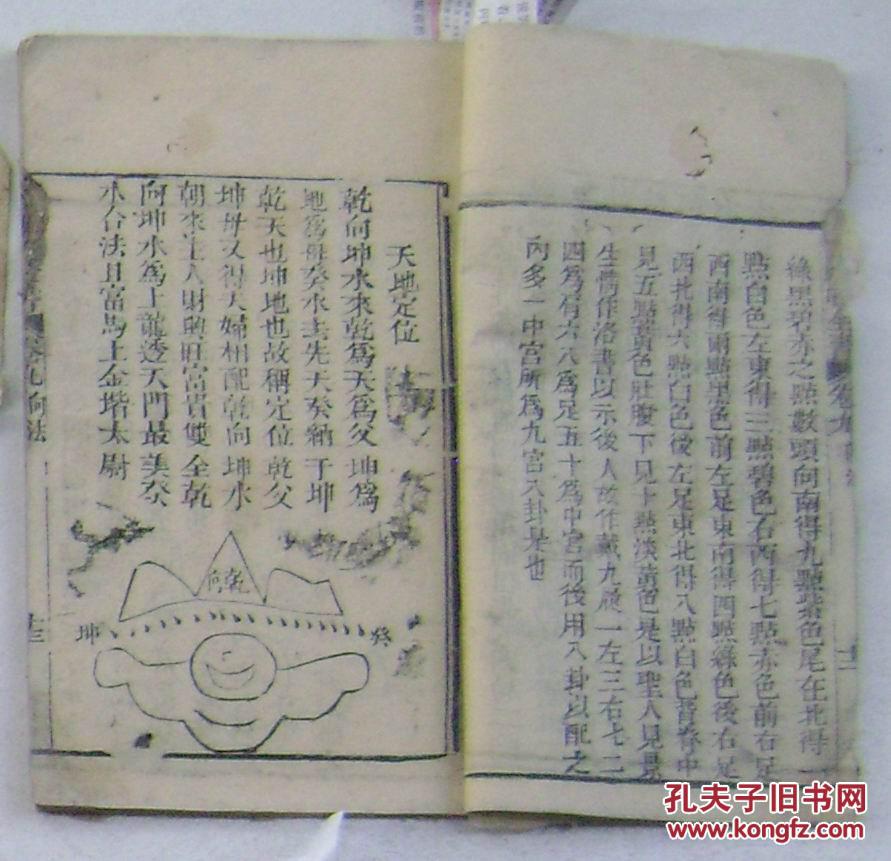 綠黑碧赤之點數頭向南得九點紫色尾在北得一
點白色左東得三點碧色右西得七點赤色前右足
西南得兩點黑色前左足東南得四點綠色後右足
西北得六點白色後左足東北得八點白色背脊中
見五點黃色肚腹下見十點淡黃色是以聖人見景
生情作洛書以示後人故作戴九履一左三右七二
四為肩六八為足五十為中宮而後用八卦以配之
內多一中宮所為九宮八卦是也
十二
天地定位
乾向坤水來乾爲天爲父坤爲
地爲母癸水去先天癸納于坤
乾天也坤地也故稱定位乾父
坤母又得夫婦相配乾向坤水
朝來主人財興旺富貴雙全乾
向坤水爲上龍透天門最美癸
水合法且富馬上金堦太尉
乾向
癸
坤
卷九向法
十三
孔夫子旧书网
www.kongfz.com